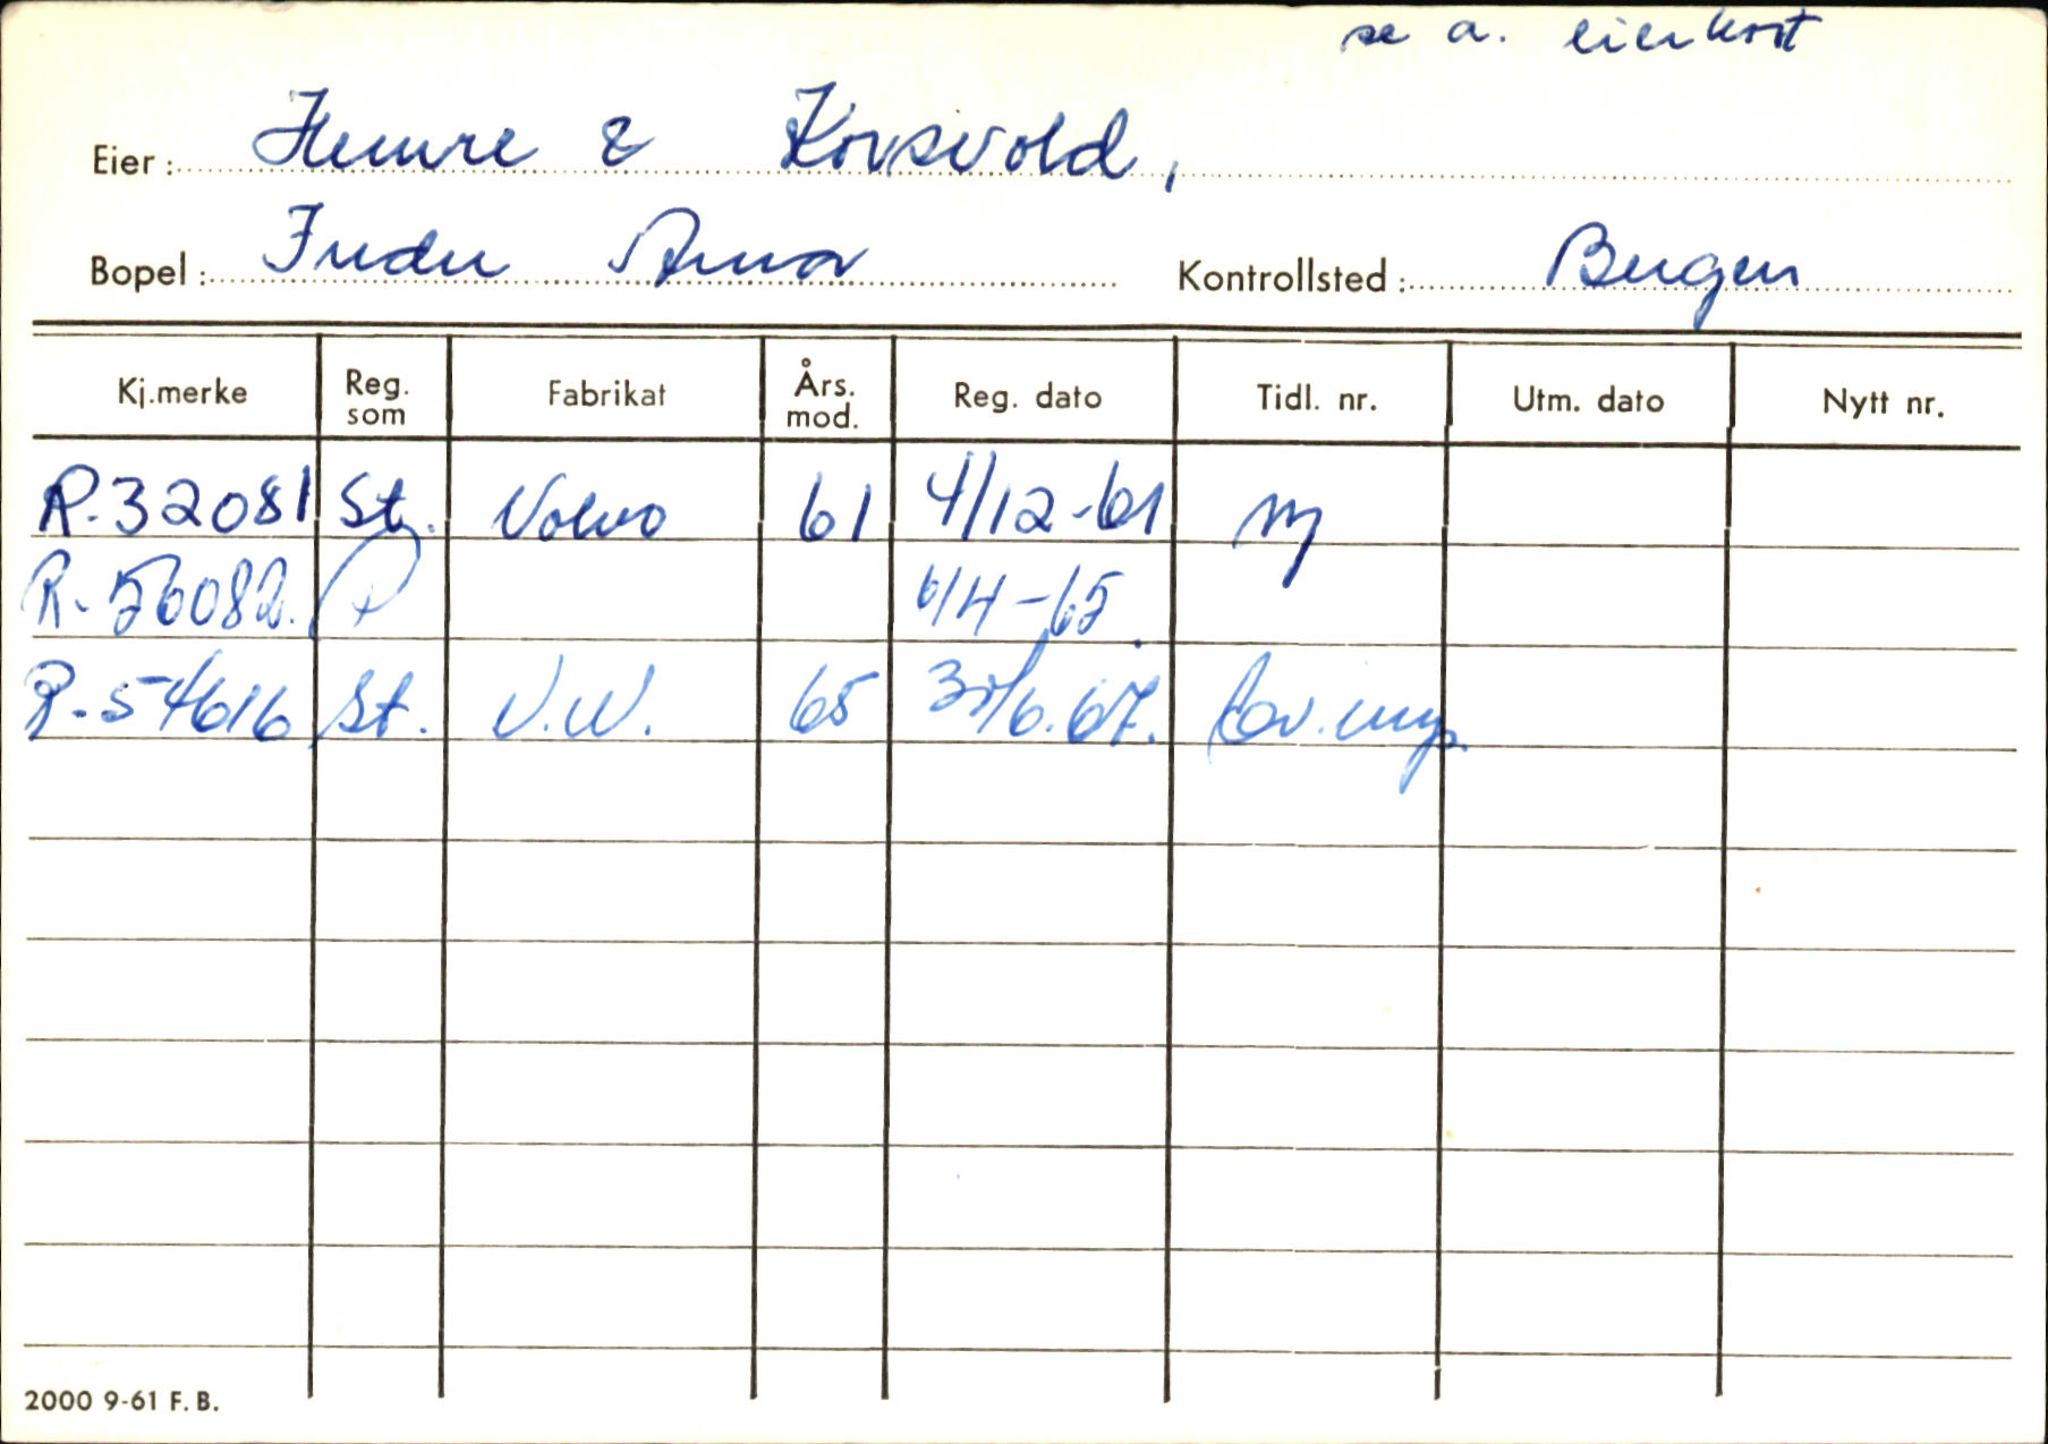 se a. eierkort
Eier: Hemre & Korsvold,
Bopel: Indre Arna Kontrollsted: Bergen
Kj.merke Reg. som Fabrikat Års. mod. Reg. dato Tidl. nr. Utm. dato Nytt nr.
R-32081 St. Volvo 61 4/12-61 ny
R-56082. P 6/4-65.
R-54616 St. V.W. 65 /6.67.
2000 9-61 F.B.